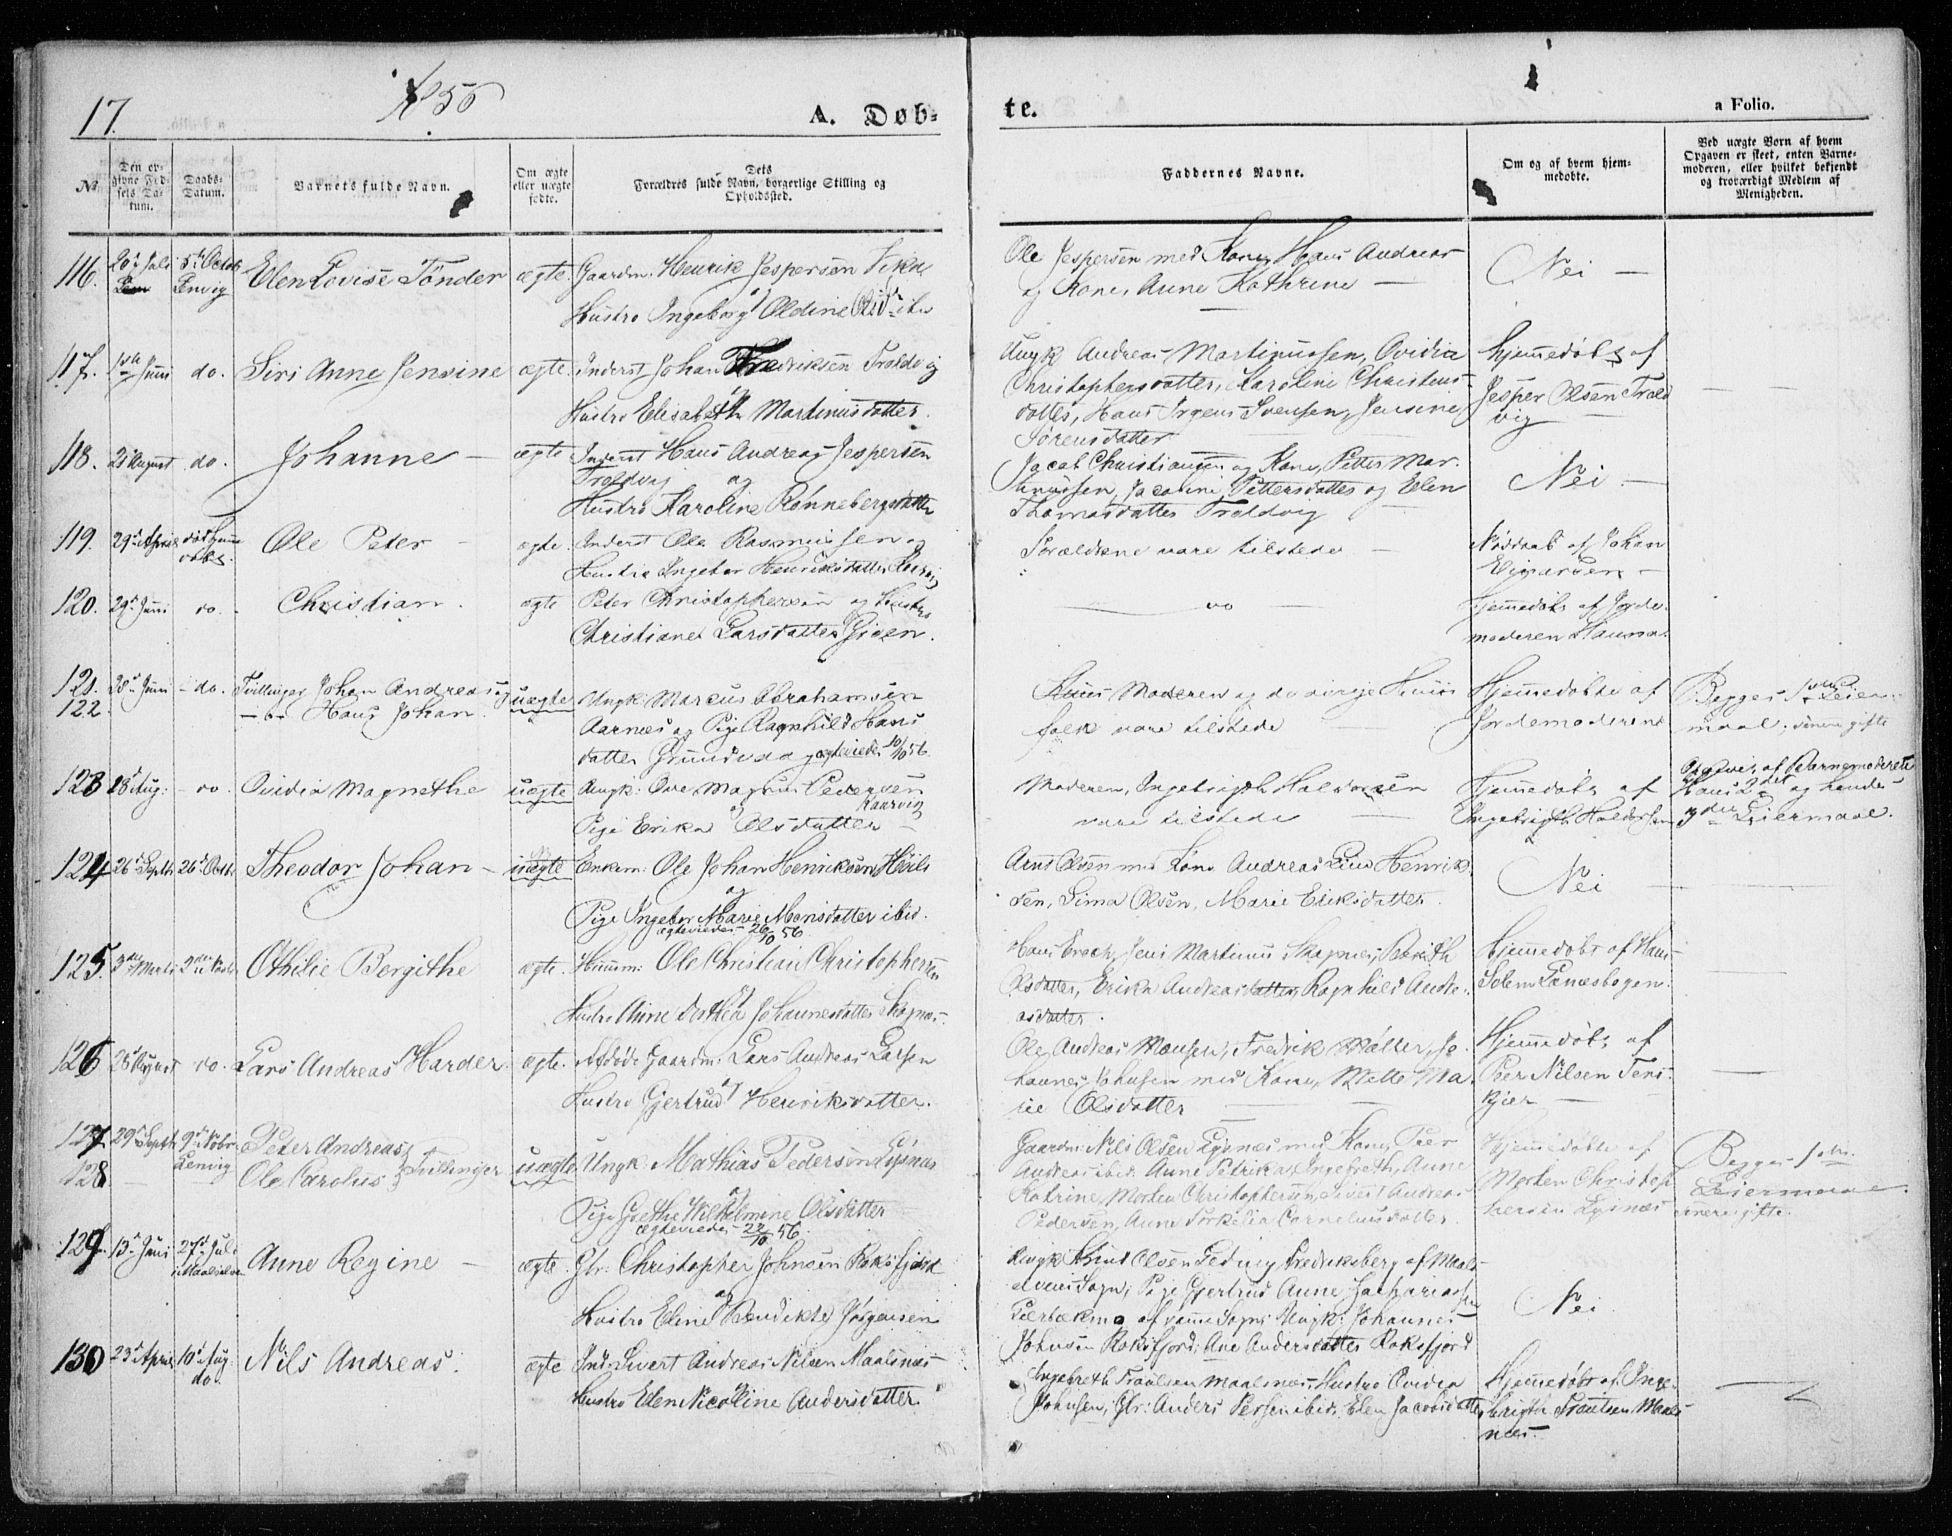 17.
A. Døb-
te.
a Folio.
№
Den op-
givne Fød-
sels Da-
tum.
Daabs-
Datum.
Barnets fulde Navn.
Om ægte
eller uægte
fødte.
Dets
Forældres fulde Navn, borgerlige Stilling og
Opholdssted.
Faddernes Navne.
Om og af hvem hjem-
medøbte.
Ved uægte Børn af hvem
Opgaven er skeet, enten Barne-
moderen, eller hvilket bekjendt
og troværdigt Medlem af
Menigheden.
116.
Lenvig
Elen Lovise Tönder
ægte.
Gaardm: Henrik Jespersen
og
Hustro Ingeborg Oldine
Ole Jespersen med Kone, Hans Andreas
og Kone, Anne Kathrine —
Nei —
117.
Juni
do.
Siri Anne Jensine
ægte.
Inderst Johan Fredriksen Troldvig
Hustro Elisabeth Martinusdatter.
Ungk Andreas Martinussen, Ovidia
Christophersdatter, Karoline Christens-
datter, Hans Irgens Svensen, Jensine
Sørensdatter
hjemmedøbt af
Jesper Olsen Trold
vig
118.
August
do.
Johanne —
ægte
Inderst Hans Andreas Jespersen
Troldvig og
Hustro Karoline Rønnebergsdatter
Jacob Christiansen og Kone, Petter Mar-
tinussen, Jacobine Pettersdatter og Elen
Thomasdatter Troldvig
Nei —
119.
29d April
Ole Peter —
ægte.
Inderst Ole Rasmussen og
Hustro Ingebor Henriksdatter
Forældrene vare tilstede —
Nøddøbt af Johan
120.
29d Juni
do.
Christian.
ægte
Peter Christophersen og Hustro
Christiane Larsdatter Gisen.
— do —
Hjemmedøbt af Jorde-
moderen Hanna
121.
122.
28d Juni
do.
Tvillinger Johan Andreas og
Hans Johan.
uægte
Ungk: Marcus Abrahamsen
Aarnæs og Pige Ragnhild Hans
datter ægteviedes 10/10 56
Moderen og
folk vare tilstede
Hjemmedøbte af
Jordemoderen
Begges 1ste Leier-
maal; senere gifte
123
28 Aug:
do.
Ovidia Magnethe
uægte
Ungk: Ove Magnus Pedersen
og Kaarvig
Pige Erika Olsdatter —
Moderen, Ingebrigth Haldorsen
vare tilstede
Hjemmedøbt af
Ingebrigth Haldorsen
Opgivet af Barnemoderen
Hans 2det og hendes
3die Leiermaal.
124
26d Septb
26d Octb
Theodor Johan —
uægte
Enkem: Ole Johan Henriksen
og
Pige Ingebor Marie Monsdatter ibid.
ægteviedes 26/10 56.
Arnt Olsen med Kone Andreas Henrik
sen, Sima Olsen, Marie Eriksdatter
Nei
125.
Othilie Bergithe
ægte.
Huusm: Ole Christian Christophersen
og
Hustro Anne Dorthea Johannesdatter Skognæs
Jens Martinus Skognæs, Berith
Olsdatter, Erika Andreasdatter, Ragnhild Andre-
asdatter.
Hjemmedøbt af Hans
126
August
do.
Lars Andreas Harder.
ægte.
Afdøde Gaardm: Lars Andreas Larsen
og
Hustro Gjertrud Henriksdatter.
Ole Andreas Monsen, Fredrik Møller, Jo-
hannes Johnsen med Kone, Mette Ma-
rie Olsdatter
Hjemmedøbt af
Peer Nilsen Tens-
kjer —
127
128
29d Septb
9d Nobr
Lenvig
Peter Andreas
Ole Carolus
Tvillinger
uægte
Ungk. Mathias Pedersen Lysnæs
og
Pige Grethe Wilhelmine Olsdatter
ægteviedes 22/10 56.
Gaardm: Nils Olsen Lysnæs med Kone, Peer
Andreas ibid. Anne Petrika, Ingebreth, Anne
Katrine, Morten Christophersen, Sivert Andreas
Pedersen, Anne Torkelia Corneliusdatter
Hjemmedøbte af
Morten Christop
hersen Lysnæs
Begges
Leiermaal.
senere gifte.
129
13d Juni
27d Juli
i Maalselven
Anne Regine —
ægte.
Glr: Christopher Johnsen Roksfjord
og
Hustro Eline Bendikte Jørgensen
Ungk: Knud Olsen Fredriksberg af Maals-
elvens Sogn; Pige Gjertrud Anne Zachariassen
af samme Sogn; Ungk: Johannes
Johnsen Roksfjord; Ane Andersdatter Roksfjord
Nei
130
23d April
10d Aug
do.
Nils Andreas.
ægte
Ind: Sivert Andreas Nilsen Maalsnæs
Hustro Elen Nicoline Andersdatter
Ingebreth Traalsen Maalsnæs, Hustro Ovidia
Johnsen, Glr: Anders Persen ibid, Elen Jacobsdatter
Hjemmedøbt af Inge-
brigth Traalsen Maals-
næs.